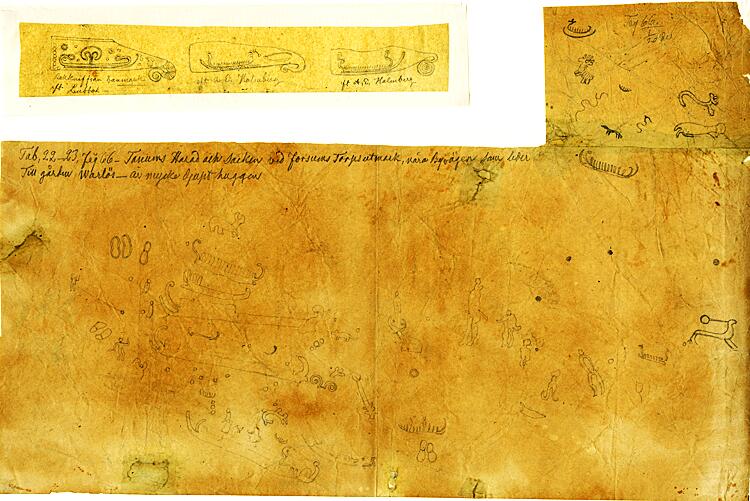 Rakknif från Danmark
eft
eft A.E. Holmberg
eft A.E. Holmberg
Fig 66.
Tab, 22–23, Fig 66 – Tanums Härad och Socken vid Forsums Torpsutmark, nära Byvägen som leder
Till gården Warlös – är mycke djupt huggen